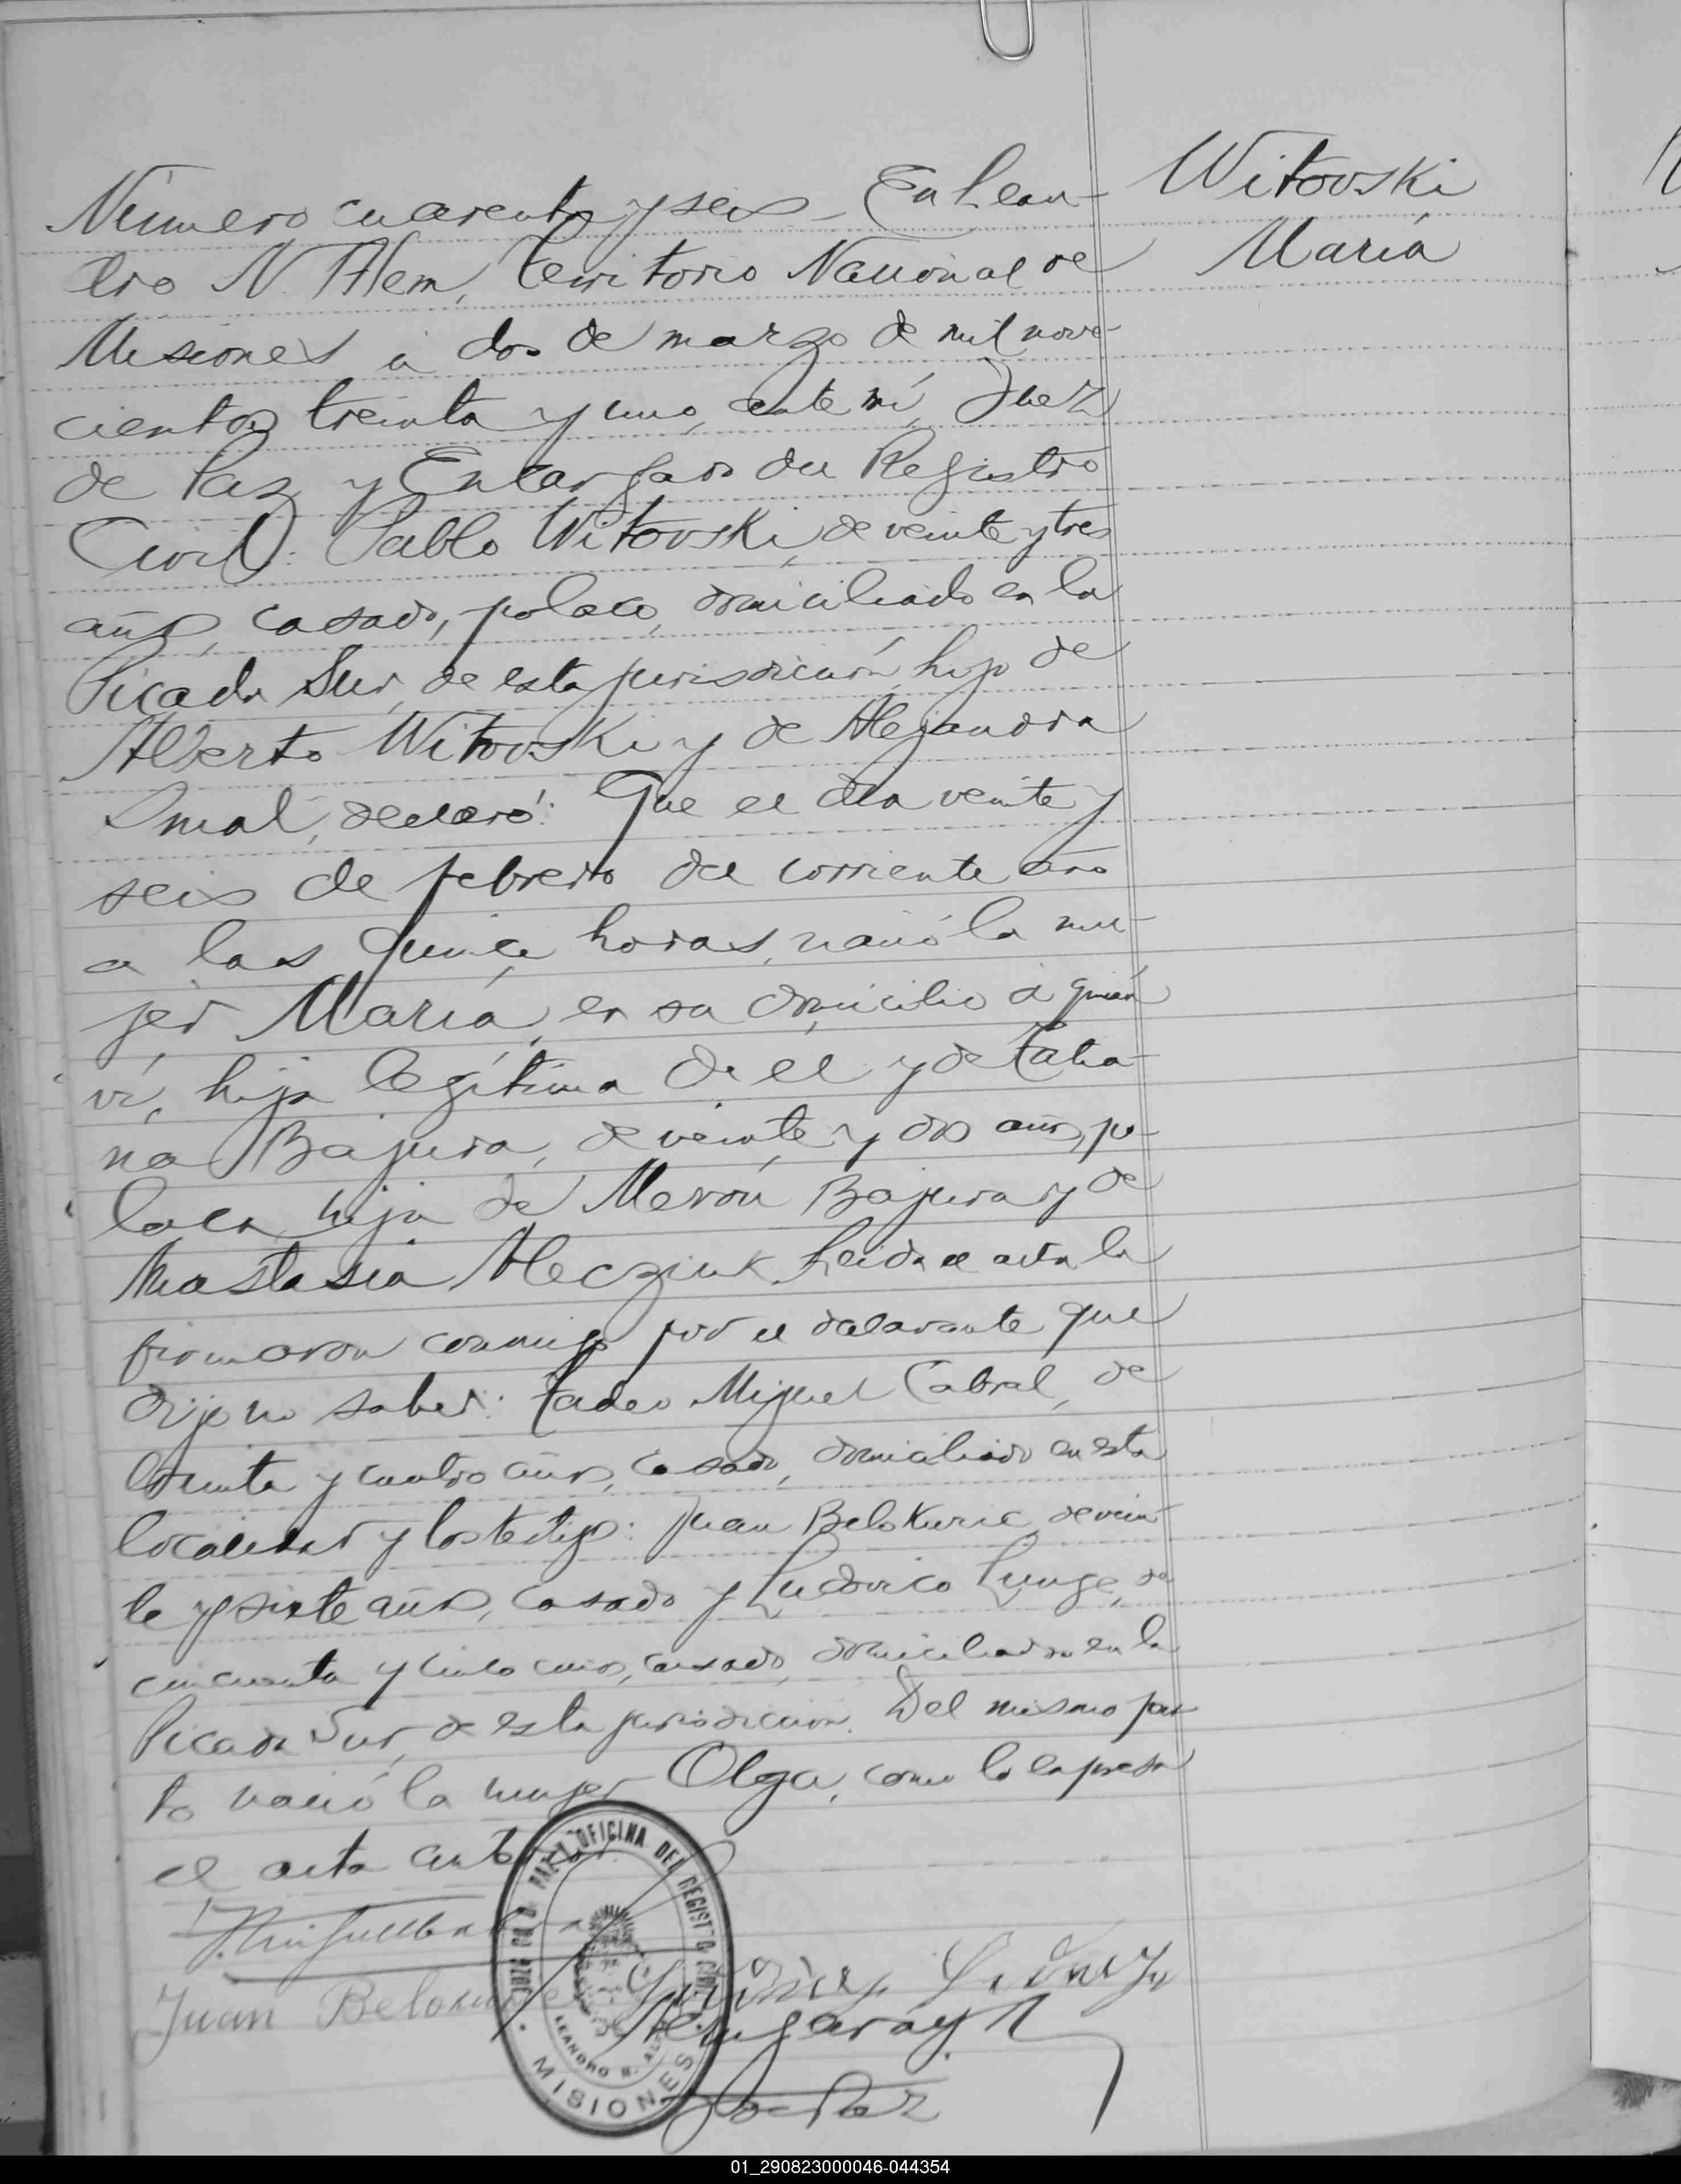 Witovski
María
Número cuarenta y seis - En Lean-
dro N. Alem, Territorio Nacional de
Misiones a dos de marzo de mil nove-
cientos treinta y uno, ante mí, Juez
de Paz y Encargado del Registro
Civil: Pablo Witovski, de veinte y tres
años, casado, polaco, domiciliado en la
Picada Sur, de esta jurisdicción, hijo de
Alberto Witovski y de Alejandra
Smal, declaró: Que el día veinte y
seis de febrero del corriente año
a las quince horas, nació la mu-
jer María, en su domicilio a quien
ví, hija legítima de el y de Tatia-
na Bajura, de veinte y dos años, po-
laca, hija de Merón Bajura y de
Anastasia Alecziuk. Leída el acta la
firmaron conmigo por el declarante que
dijo no saber: Tadeo Miguel Cabral, de
treinta y cuatro años, casado, domiciliado en esta
localidad y los testigos: Juan Belokuric, de vein-
te y siete años, casado y Ludovico Lunge, de
cincuenta y cinco años, casado, domiciliado en la
Picada Sur, de esta jurisdicción. Del mismo par
to nació la mujer Olga, como lo expresa
el acta
JUZGADO DE PAZ Y OFICINA DEL REGISTRO CIVIL
LEANDRO N. ALEM
MISIONES
Juan Belokuric
J. de Paz
01_290823000046-044354